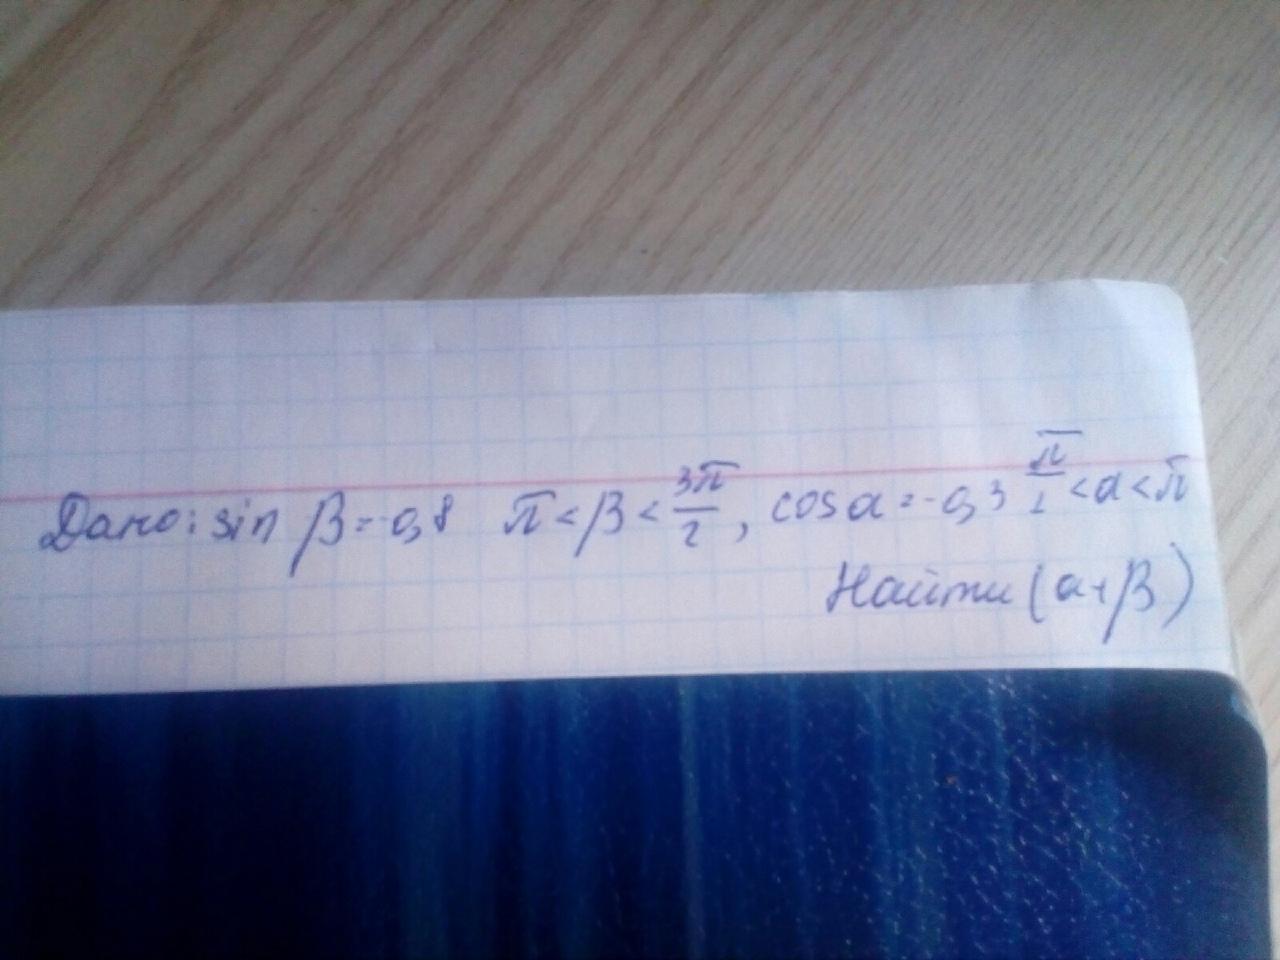 Дано: sin β = -0,8 π < β < 3π/2, cos α = -0,3 π/2 < α < π
Найти (α + β)